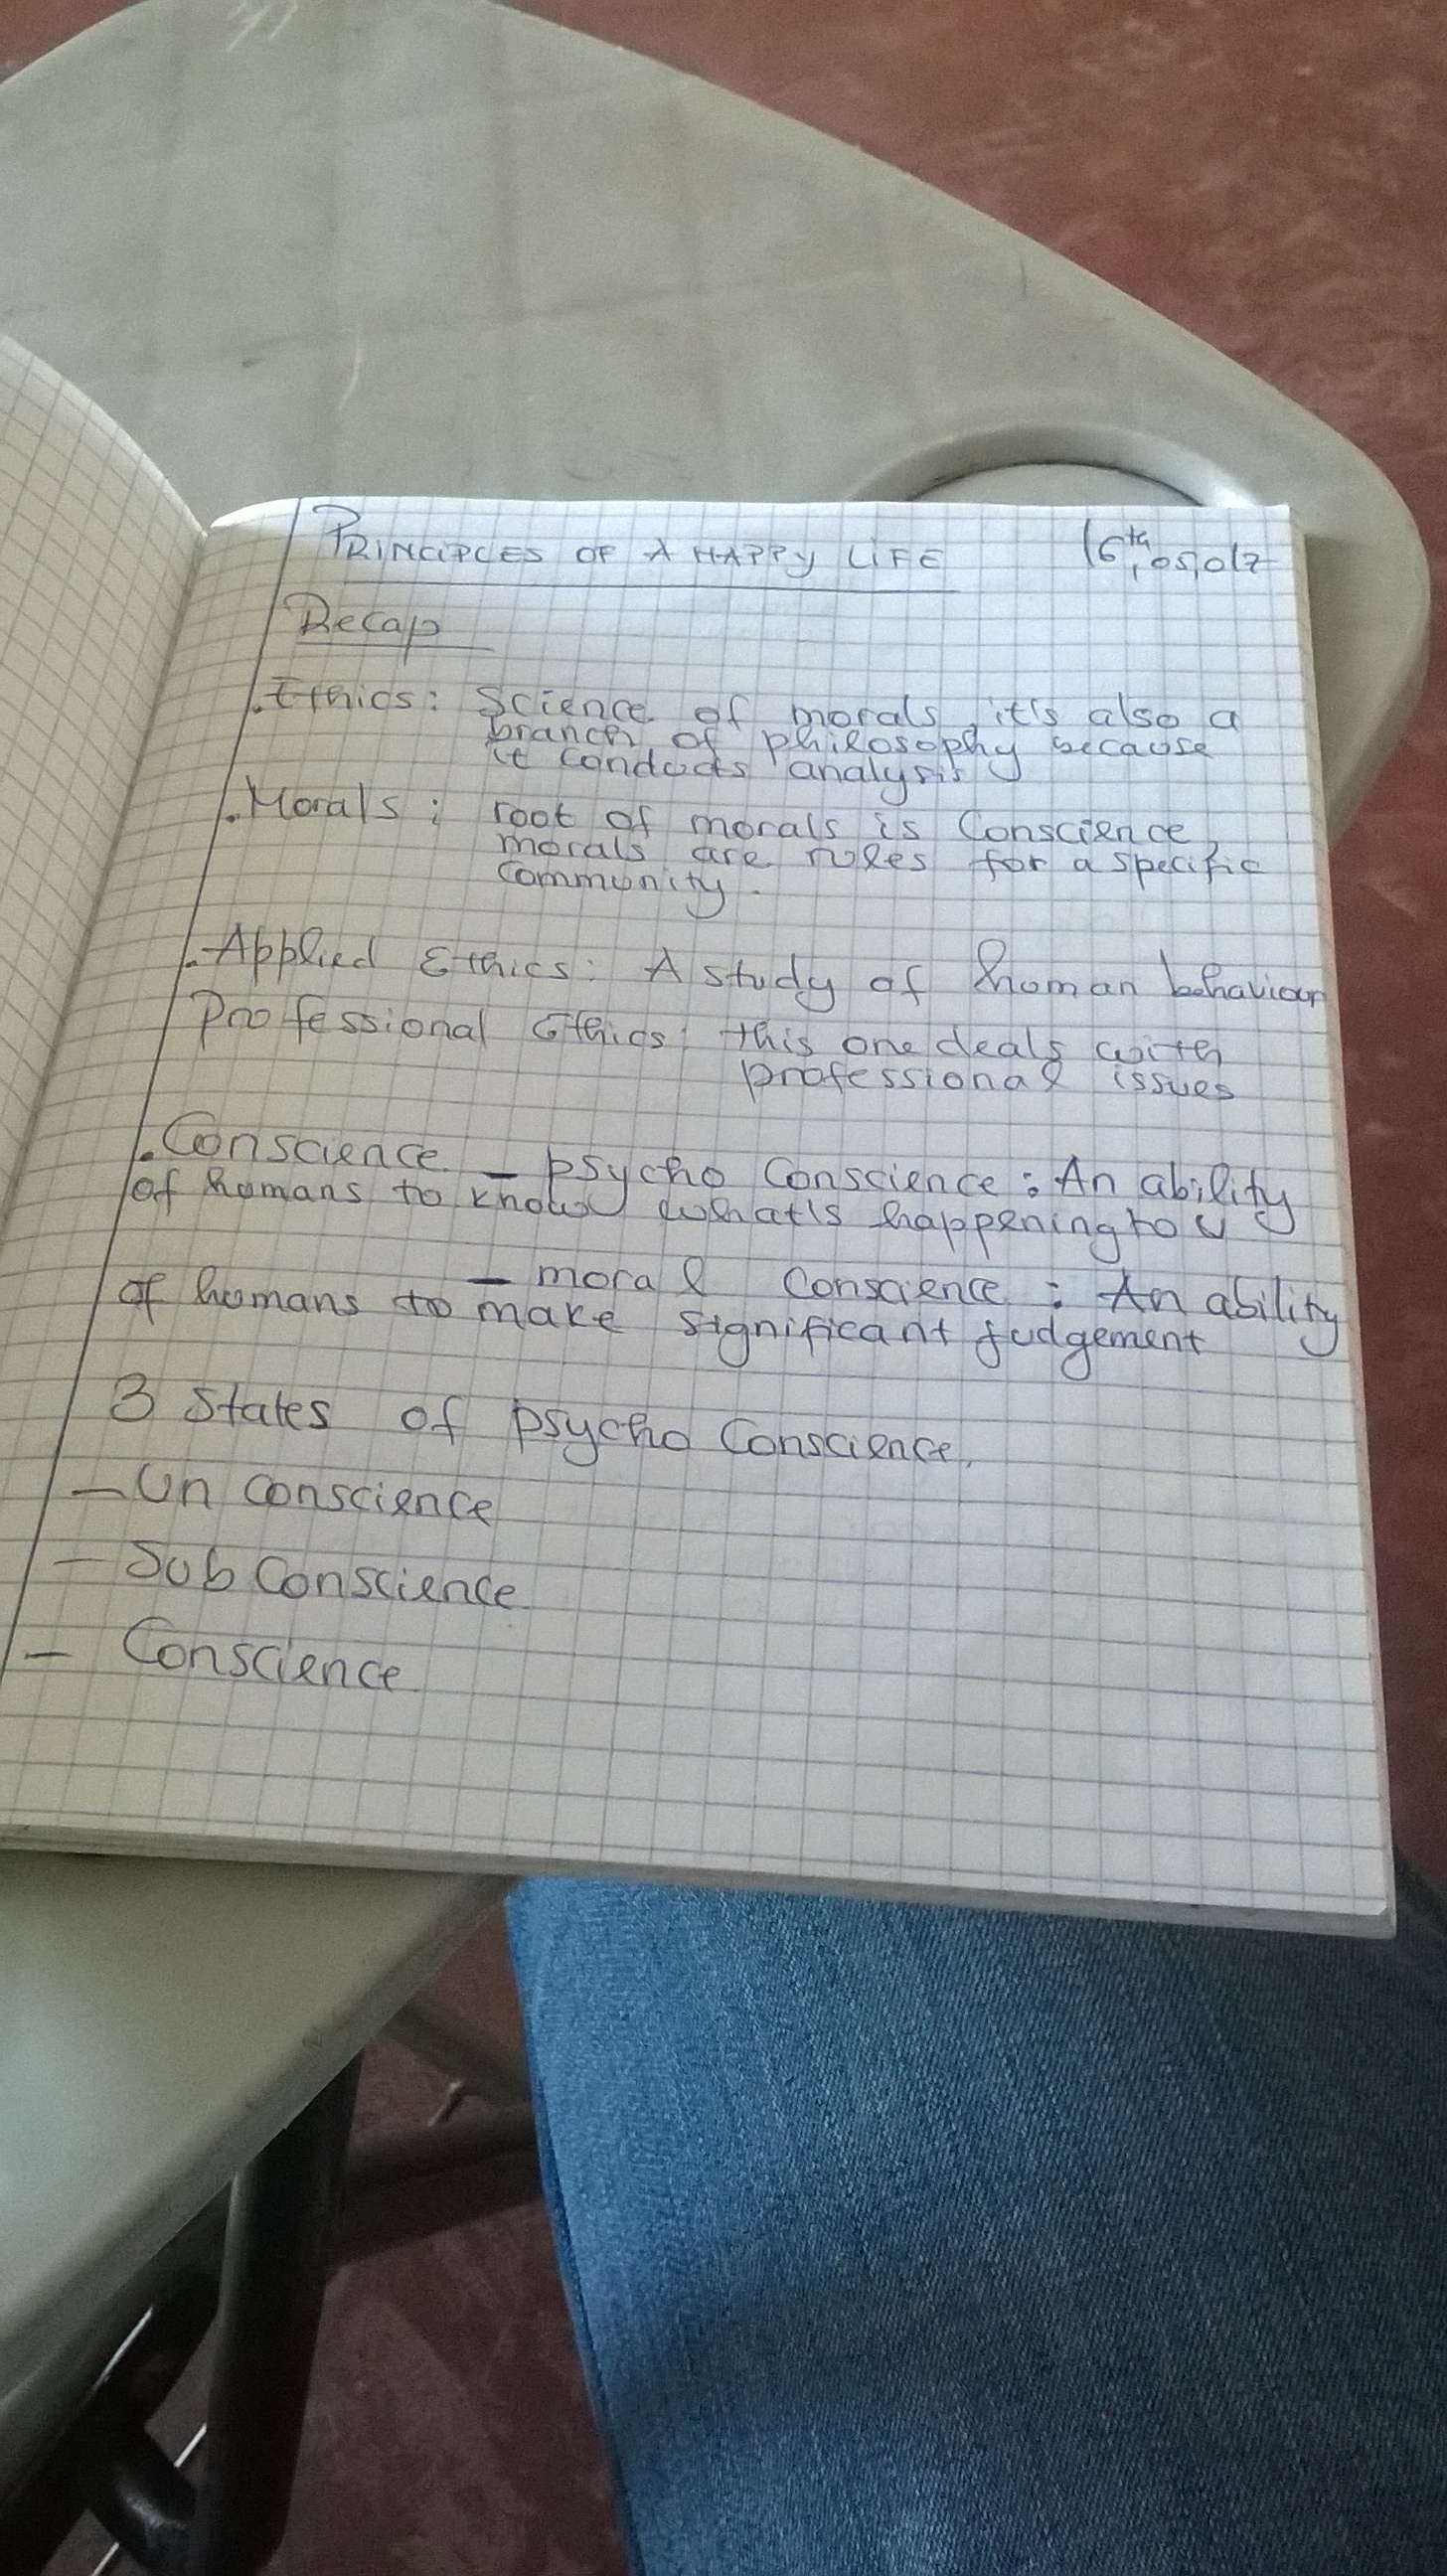 PRINCIPLES OF A HAPPY LIFE 16th, 05, 017
Recap
. Ethics : Science of morals, it's also a
branch of philosophy because
it conducts analysis
. Morals : root of morals is Conscience,
morals are rules for a specific
Community.
. Applied Ethics : A study of human behaviour
Professional Ethics : this one deals with
professional issues
. Conscience - psycho Conscience : An ability
of humans to know what's happening to u
- moral Conscience : An ability
of humans to make significant judgement
3 States of psycho Conscience.
- Un conscience
- Sub Conscience
- Conscience